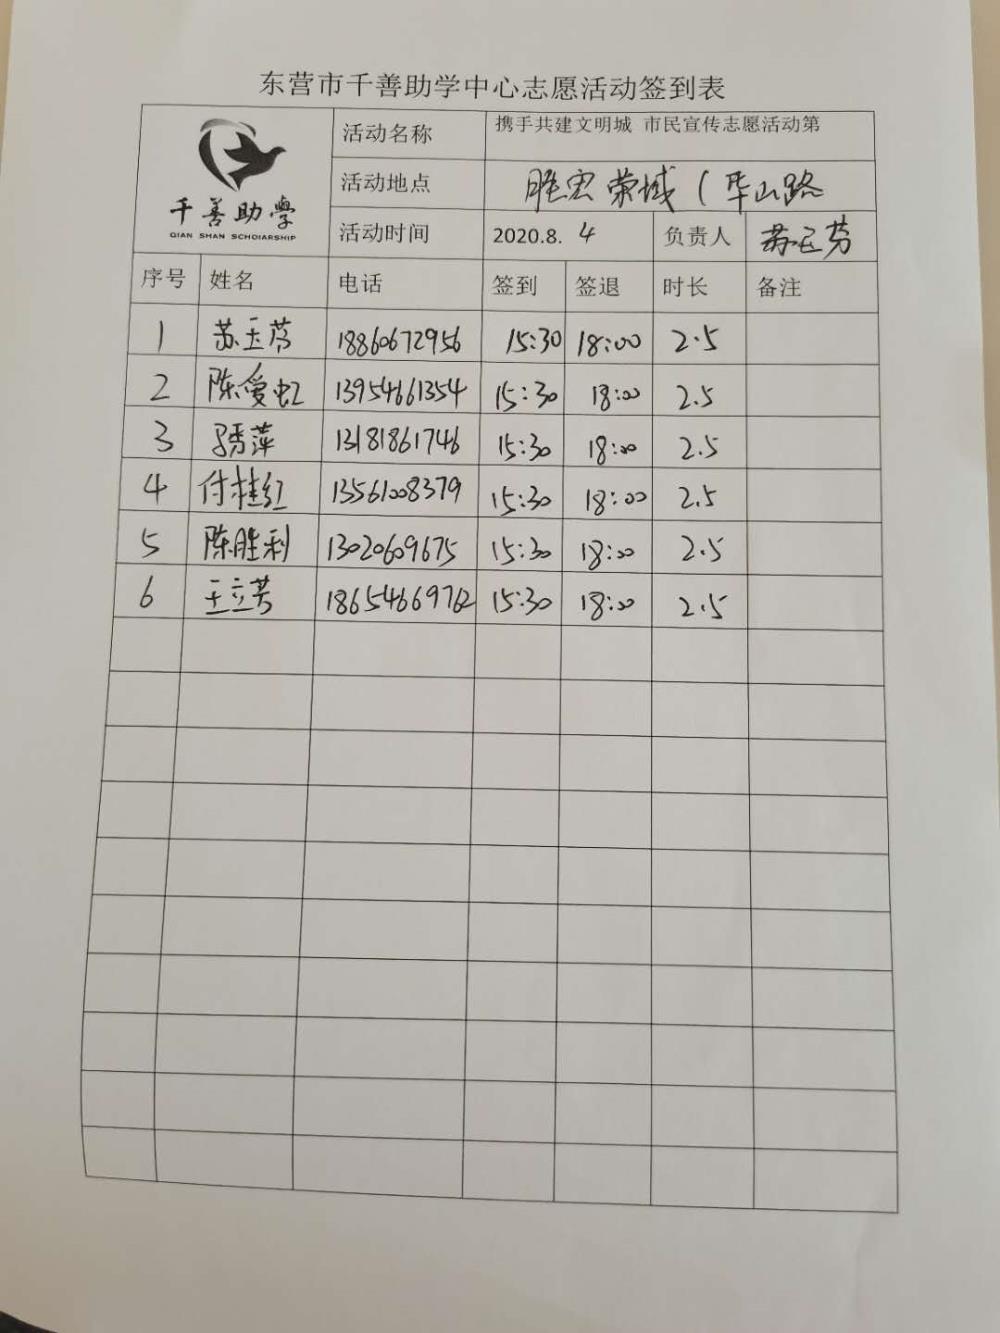 东营市千善助学中心志愿活动签到表
千善助學
QIAN SHAN SCHOIARSHIP
活动名称 携手共建文明城 市民宣传志愿活动第
活动地点 胜宏荣域（华山路
活动时间 2020.8. 4 负责人 苏玉芬
序号 姓名 电话 签到 签退 时长 备注
1 苏玉芬 18860672956 15:30 18:00 2.5
2 陈爱虹 13954661354 15:30 18:00 2.5
3 秀萍 13181861746 15:30 18:00 2.5
4 付桂红 13561008379 15:30 18:00 2.5
5 陈胜利 13020609675 15:30 18:00 2.5
6 王立芳 18654669762 15:30 18:00 2.5